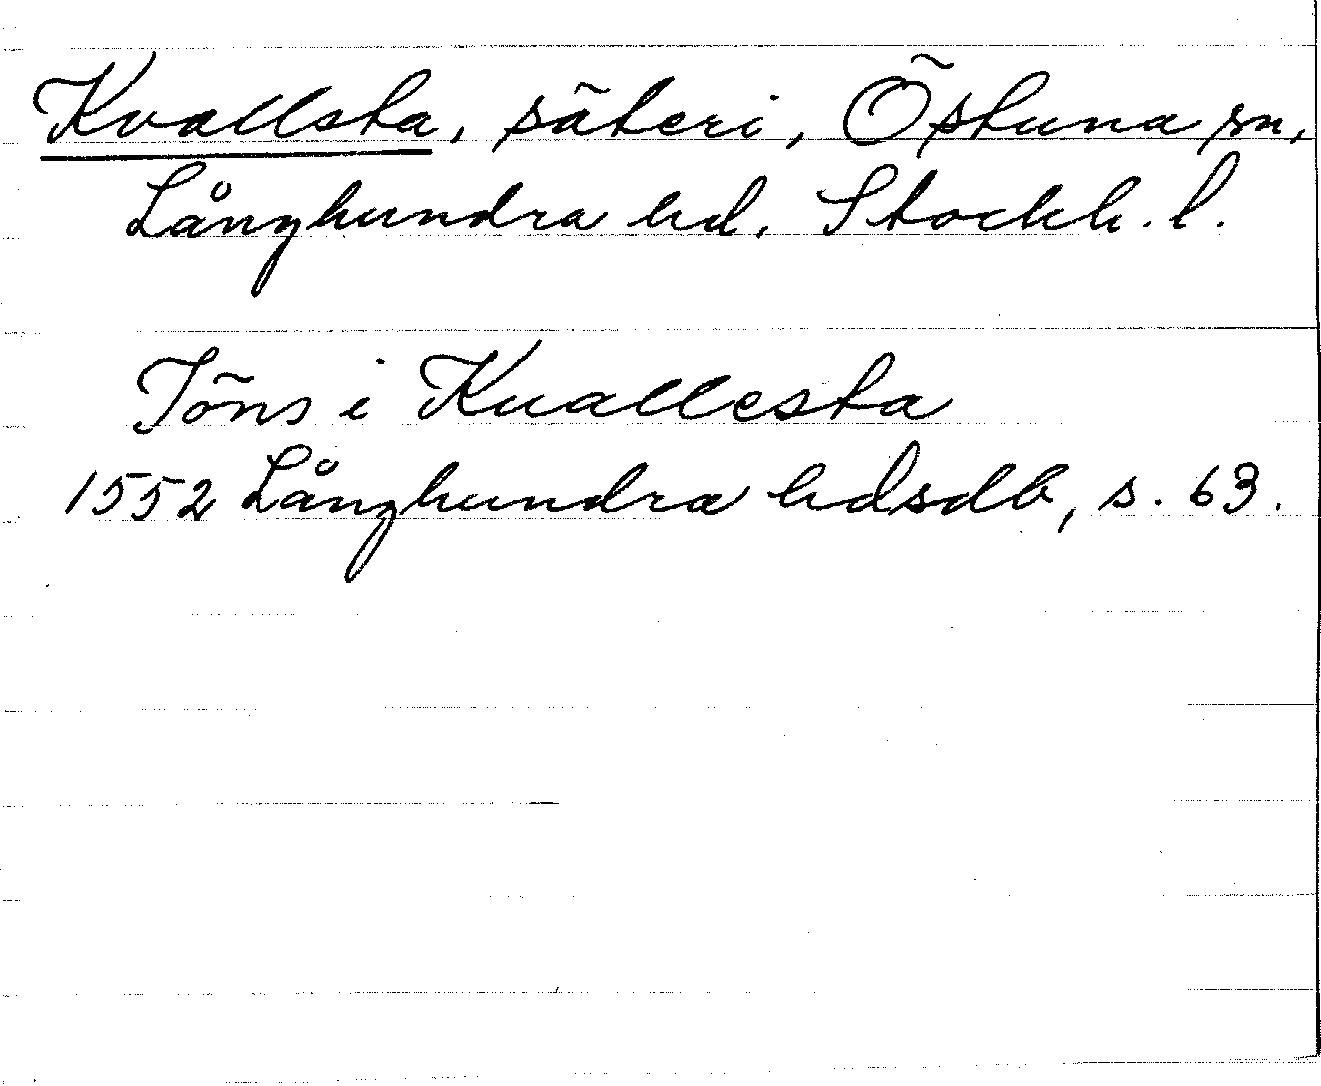 Kvallsta, säteri, Östuna sn,
Långhundra hd, Stockh. l.
Jöns i Kuallesta
1552 Långhundra hdsdb, s. 63.